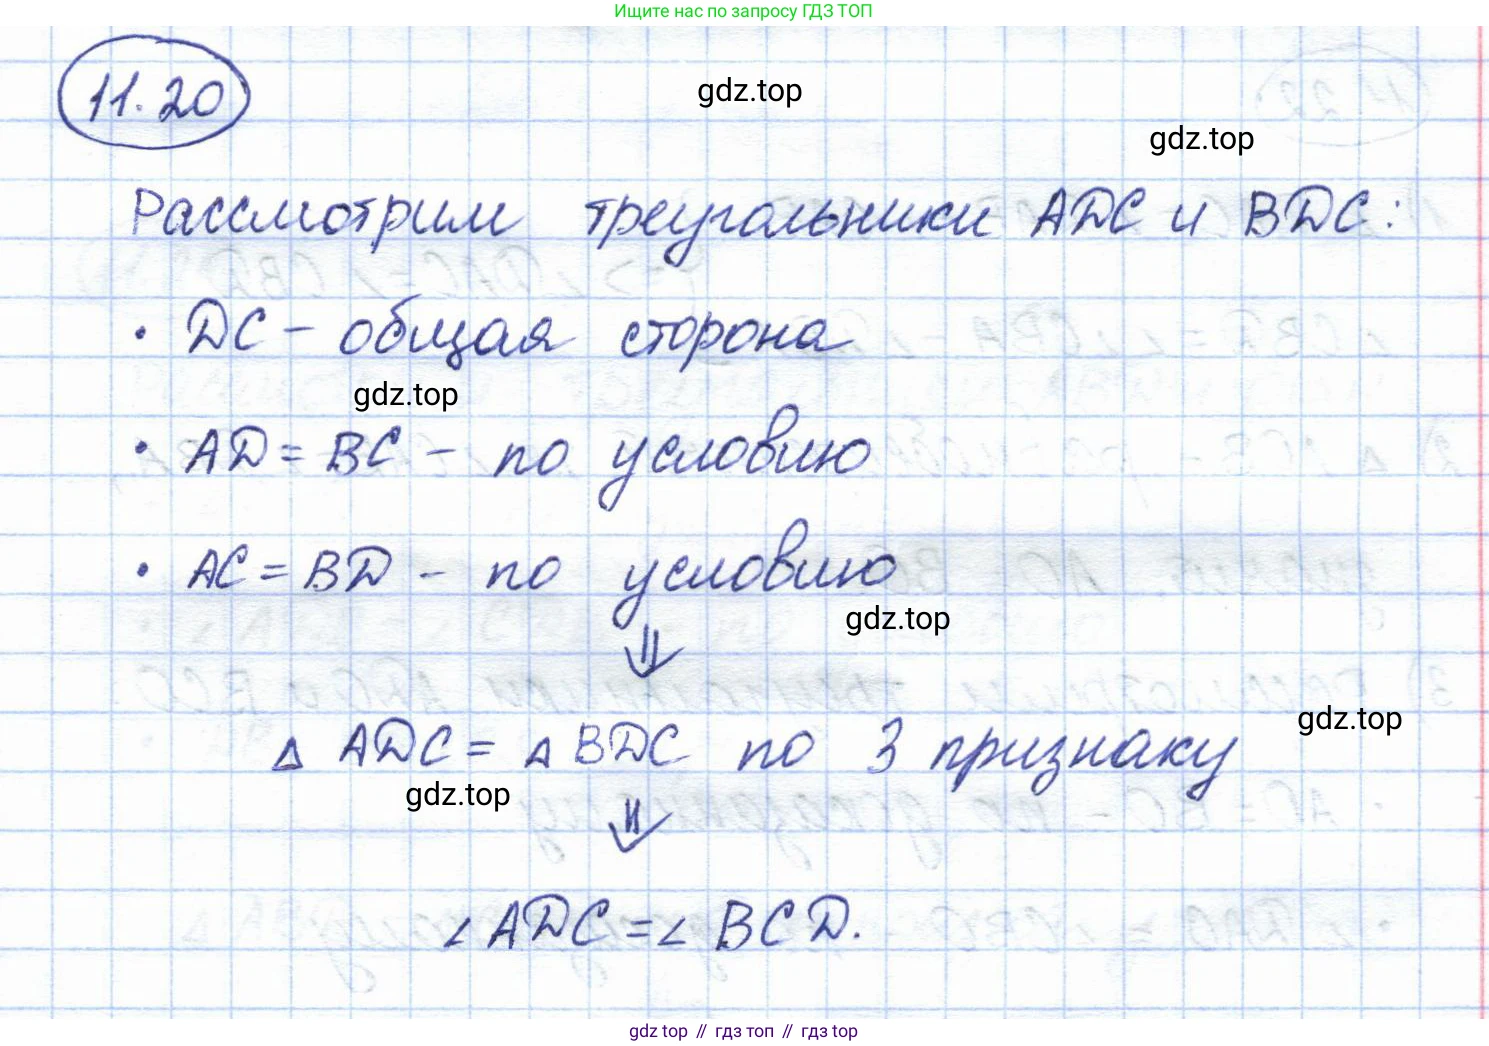 Ищите нас по запросу ГДЗ ТОП
11.20
gdz.top
gdz.top
Рассмотрим треугольники ADC и BDC:
• DC – общая сторона
gdz.top
• AD = BC – по условию
• AC = BD – по условию
gdz.top
⇓
gdz.top
Δ ADC = Δ BDC по 3 признаку
gdz.top
⇓
∠ ADC = ∠ BCD.
gdz top // гдз топ // гдз top